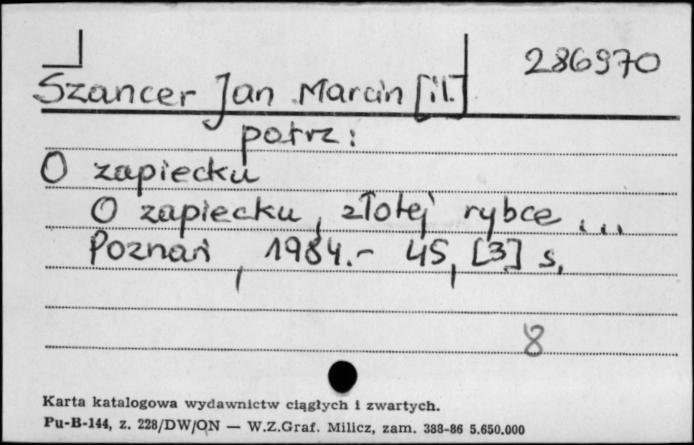 286970
Szancer Jan Marcin [il.]
patrz:
O zapiecku
O zapiecku, złotej rybce ...
Poznań, 1984.- 45, [3] s.
8
Karta katalogowa wydawnictw ciągłych i zwartych.
Pu-B-144, z. 228/DW/QN — W.Z.Graf. Milicz, zam. 388-86 5.650.000